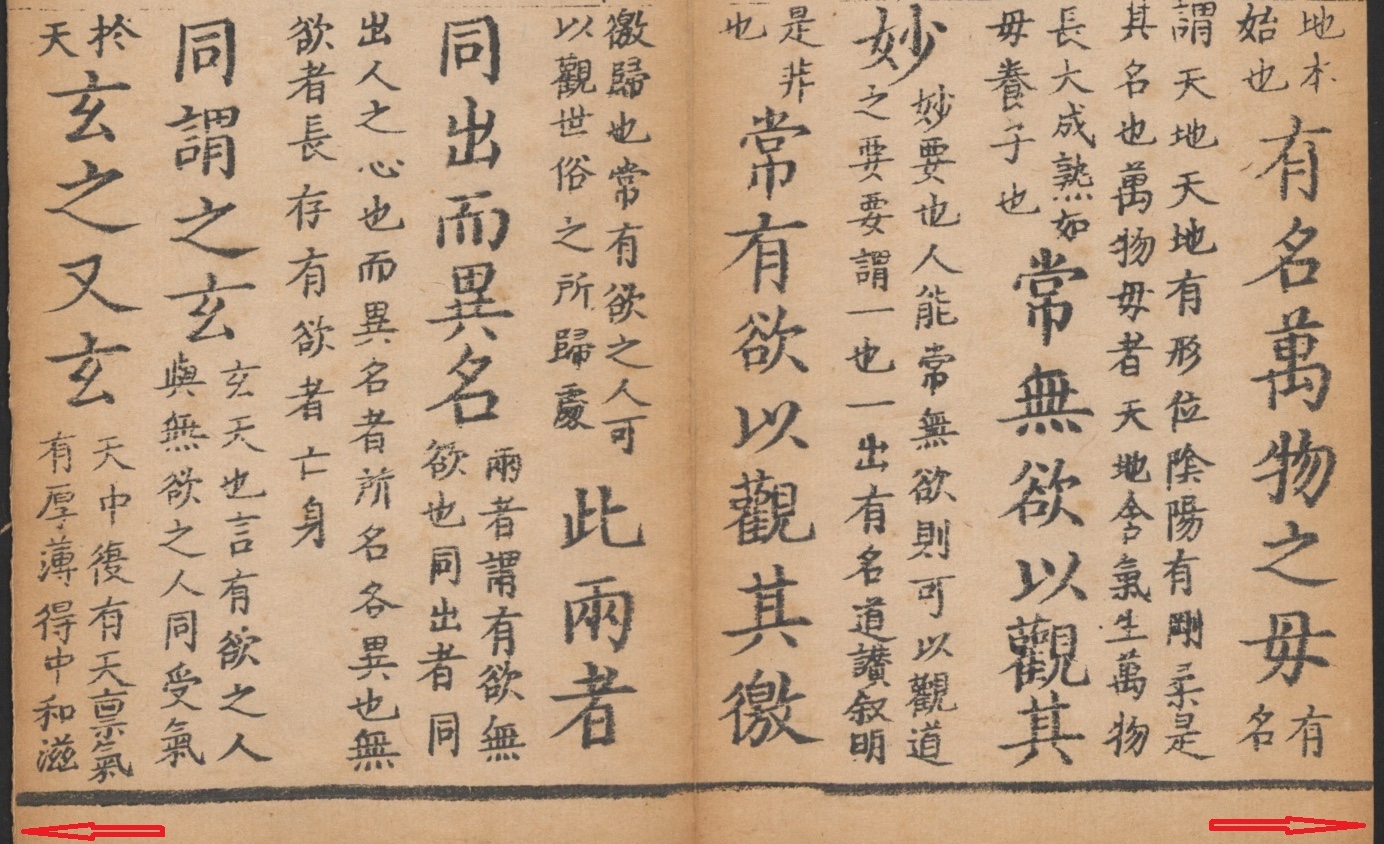 地本
始也
有名萬物之毋
有
名
謂天地天地有形位陰陽有剛柔是
其名也萬物毋者天地含氣生萬物
長大成熟如
毋養子也
常無欲以觀其
妙
妙要也人能常無欲則可以觀道
之要要謂一也一出有名道讃叙明
是非
也
常有欲以觀其徼
徼歸也常有欲之人可
以觀世俗之所歸處
此兩者
同出而異名
兩者謂有欲無
欲也同出者同
出人之心也而異名者所名各異也無
欲者長存有欲者亡身
同謂之玄
玄天也言有欲之人
與無欲之人同受氣
於
天
玄之又玄
天中復有天禀氣
有厚薄得中和滋